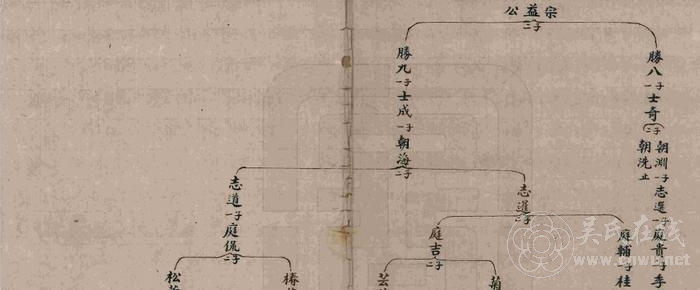 宗益公
二子
勝八
一子
士奇
二子
朝淵
一子
志選
一子
庭貴
子
季
朝洗
止
勝九
一子
士成
一子
朝海
二子
志選
二子
庭輔
子
桂
庭吉
二子
菊
芸
志道
一子
庭侃
二子
椿
松
吴氏在线
cnwu.net